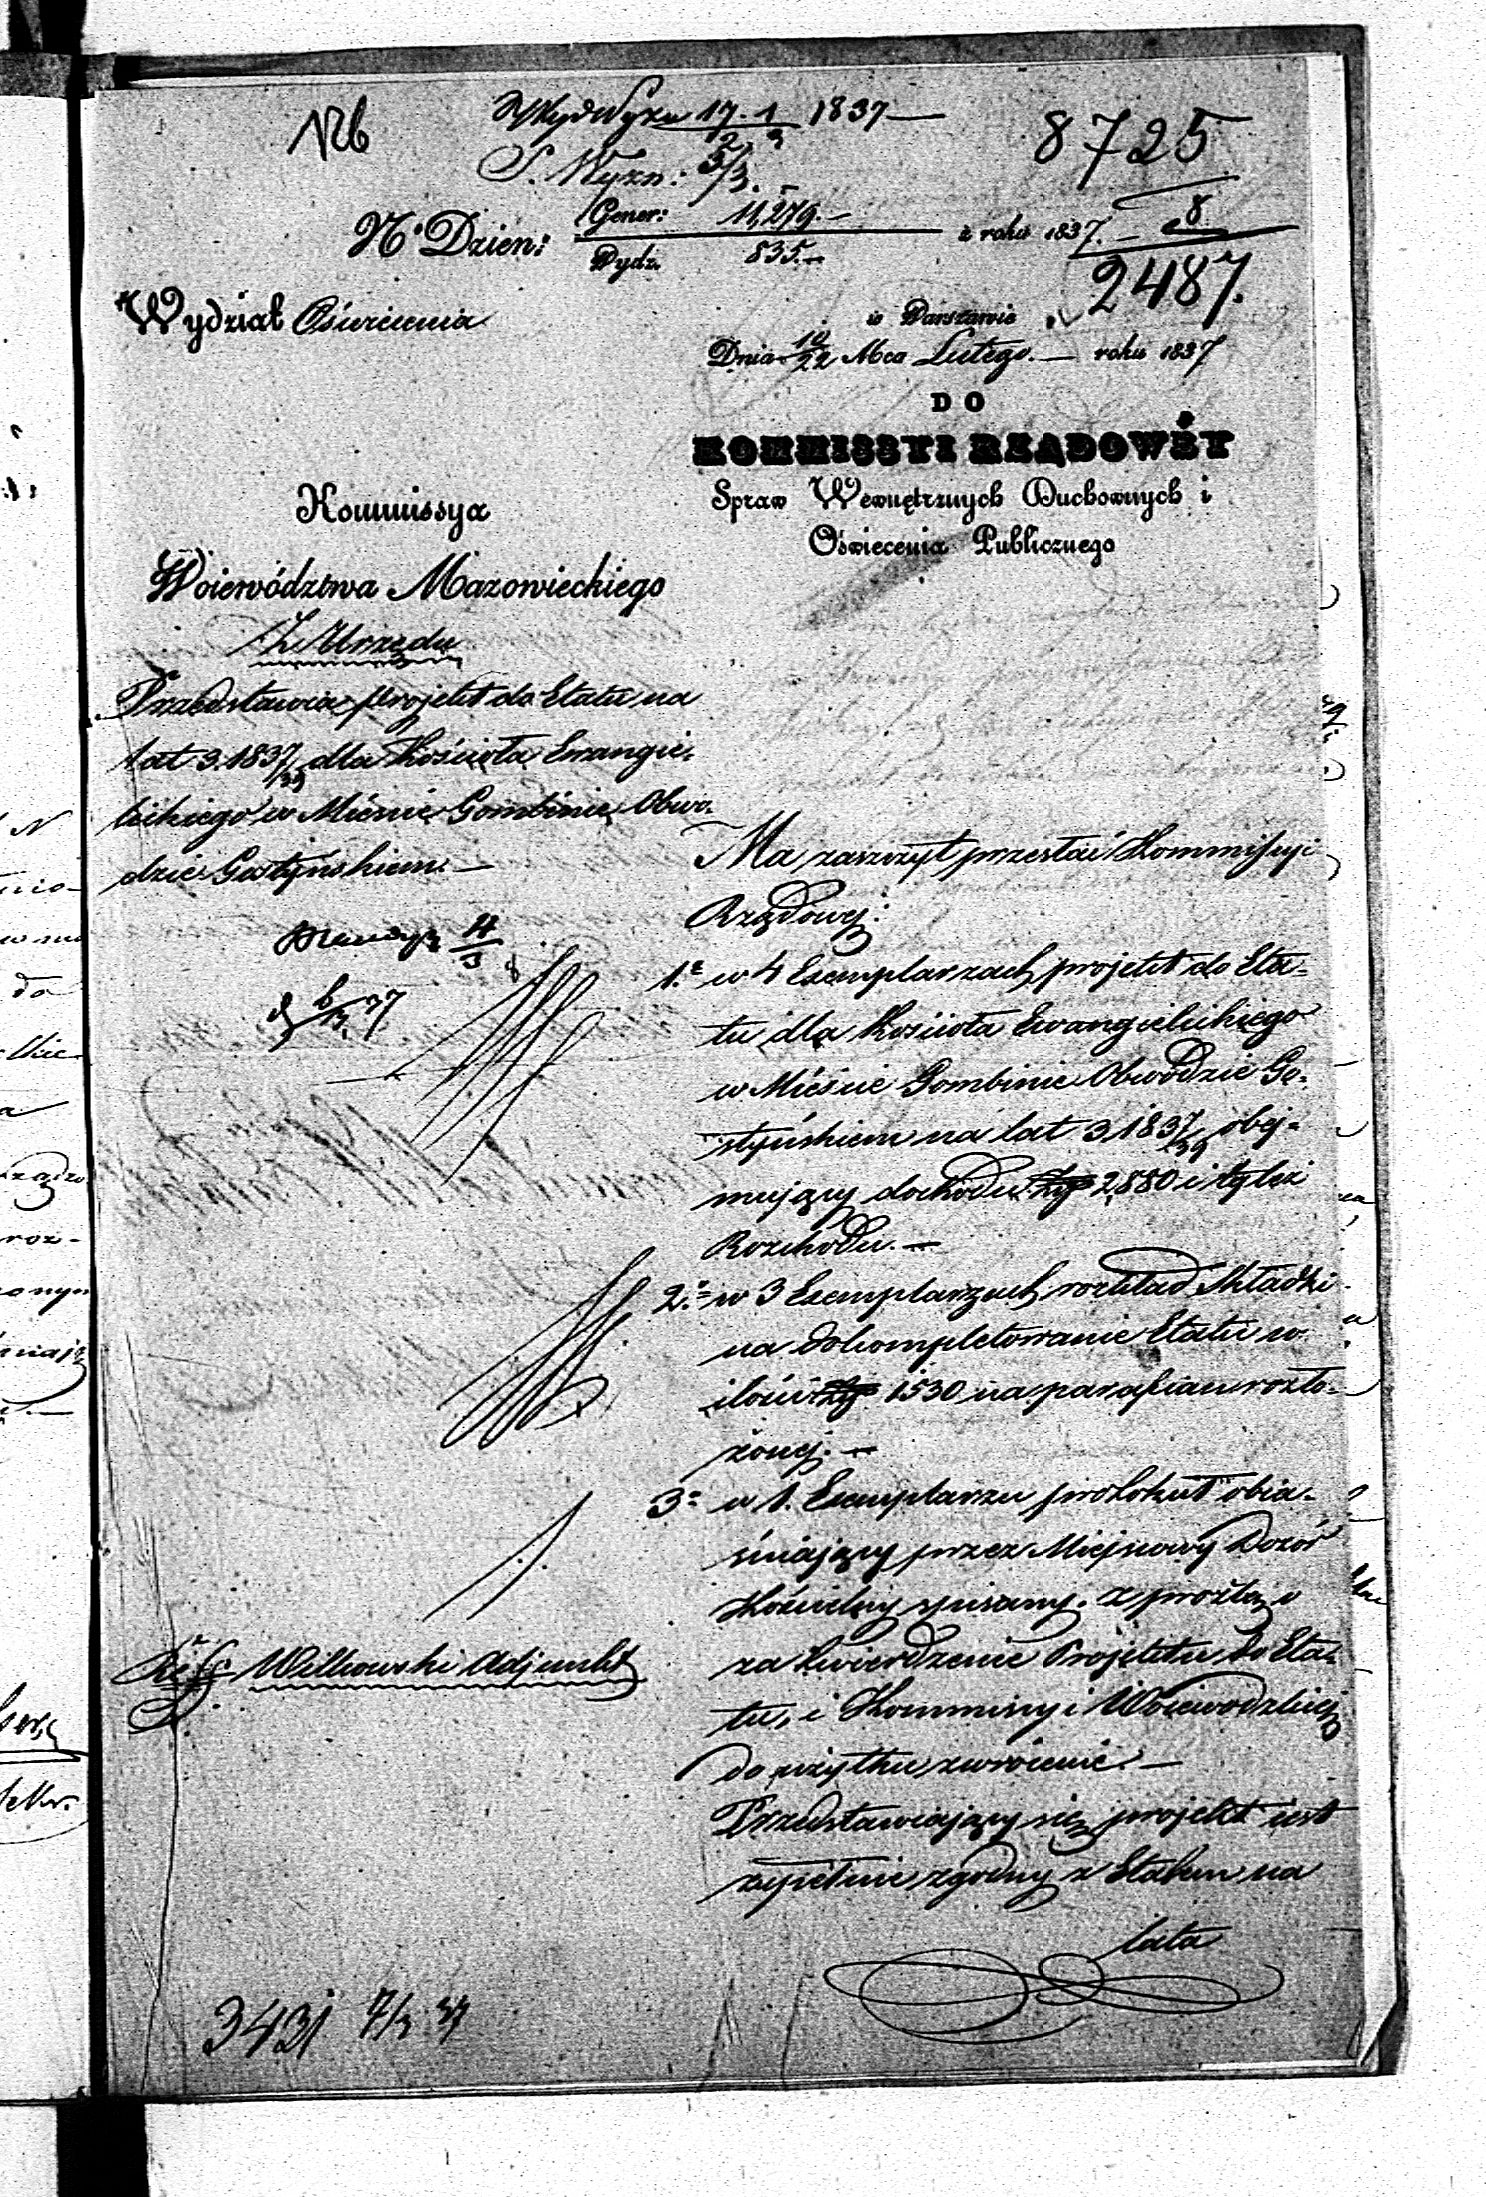 Nb
WydWyzn 17.1 1837
S. Wyzn: 5/3.
8725
8
2487.
No. Dzien: Gener: 11,279.— z roku 1837.—
Wydz. 835.—
Wydział Oświecenia
w Warszawie
Dnia 10/22 Mca Lutego.— roku 1837
DO
KOMMISSYI RZĄDOWÉY
Spraw Wewnętrznych Duchownych i
Oświecenia Publicznego
Kommissya
Woiewództwa Mazowieckiego
Z Urzędu
Przedstawia projekt do Etatu na
lat 3. 1837/39 dla Kościoła Ewangie-
lickiego w Mieście Gombinie Obwo-
dzie Gostyńskiem.—
4/3
Ma zaszczyt przesłać Kommissyi
Rządowej:
1.e w 4 Exemplarzach projekt do Eta-
tu dla Kościoła Ewangielickiego
w Mieście Gombinie Obwodzie Go-
styńskiem na lat 3 1837/39 obej-
mujący dochodu Złp 2,880 i tyleż
Rozchodu.—
2.e w 3 Exemplarzach rozkład Składki
na dokompletowanie Etatu w
ilości Złp 1530 na parafian rozło-
żonej.—
3e w 1. Exemplarzu protokuł obia-
śniający przez Miejscowy Dozór
Kościelny spisany. z proźbą o
zatwierdzenie Projektu do Eta-
tu, i Kommissyi Woiewodzkiej
do użytku zwrócenie.—
Przedstawiający się projekt iest
zupełnie zgodny z Etatem na
lata
Witkowski Adjunkt
3431 7/3 37